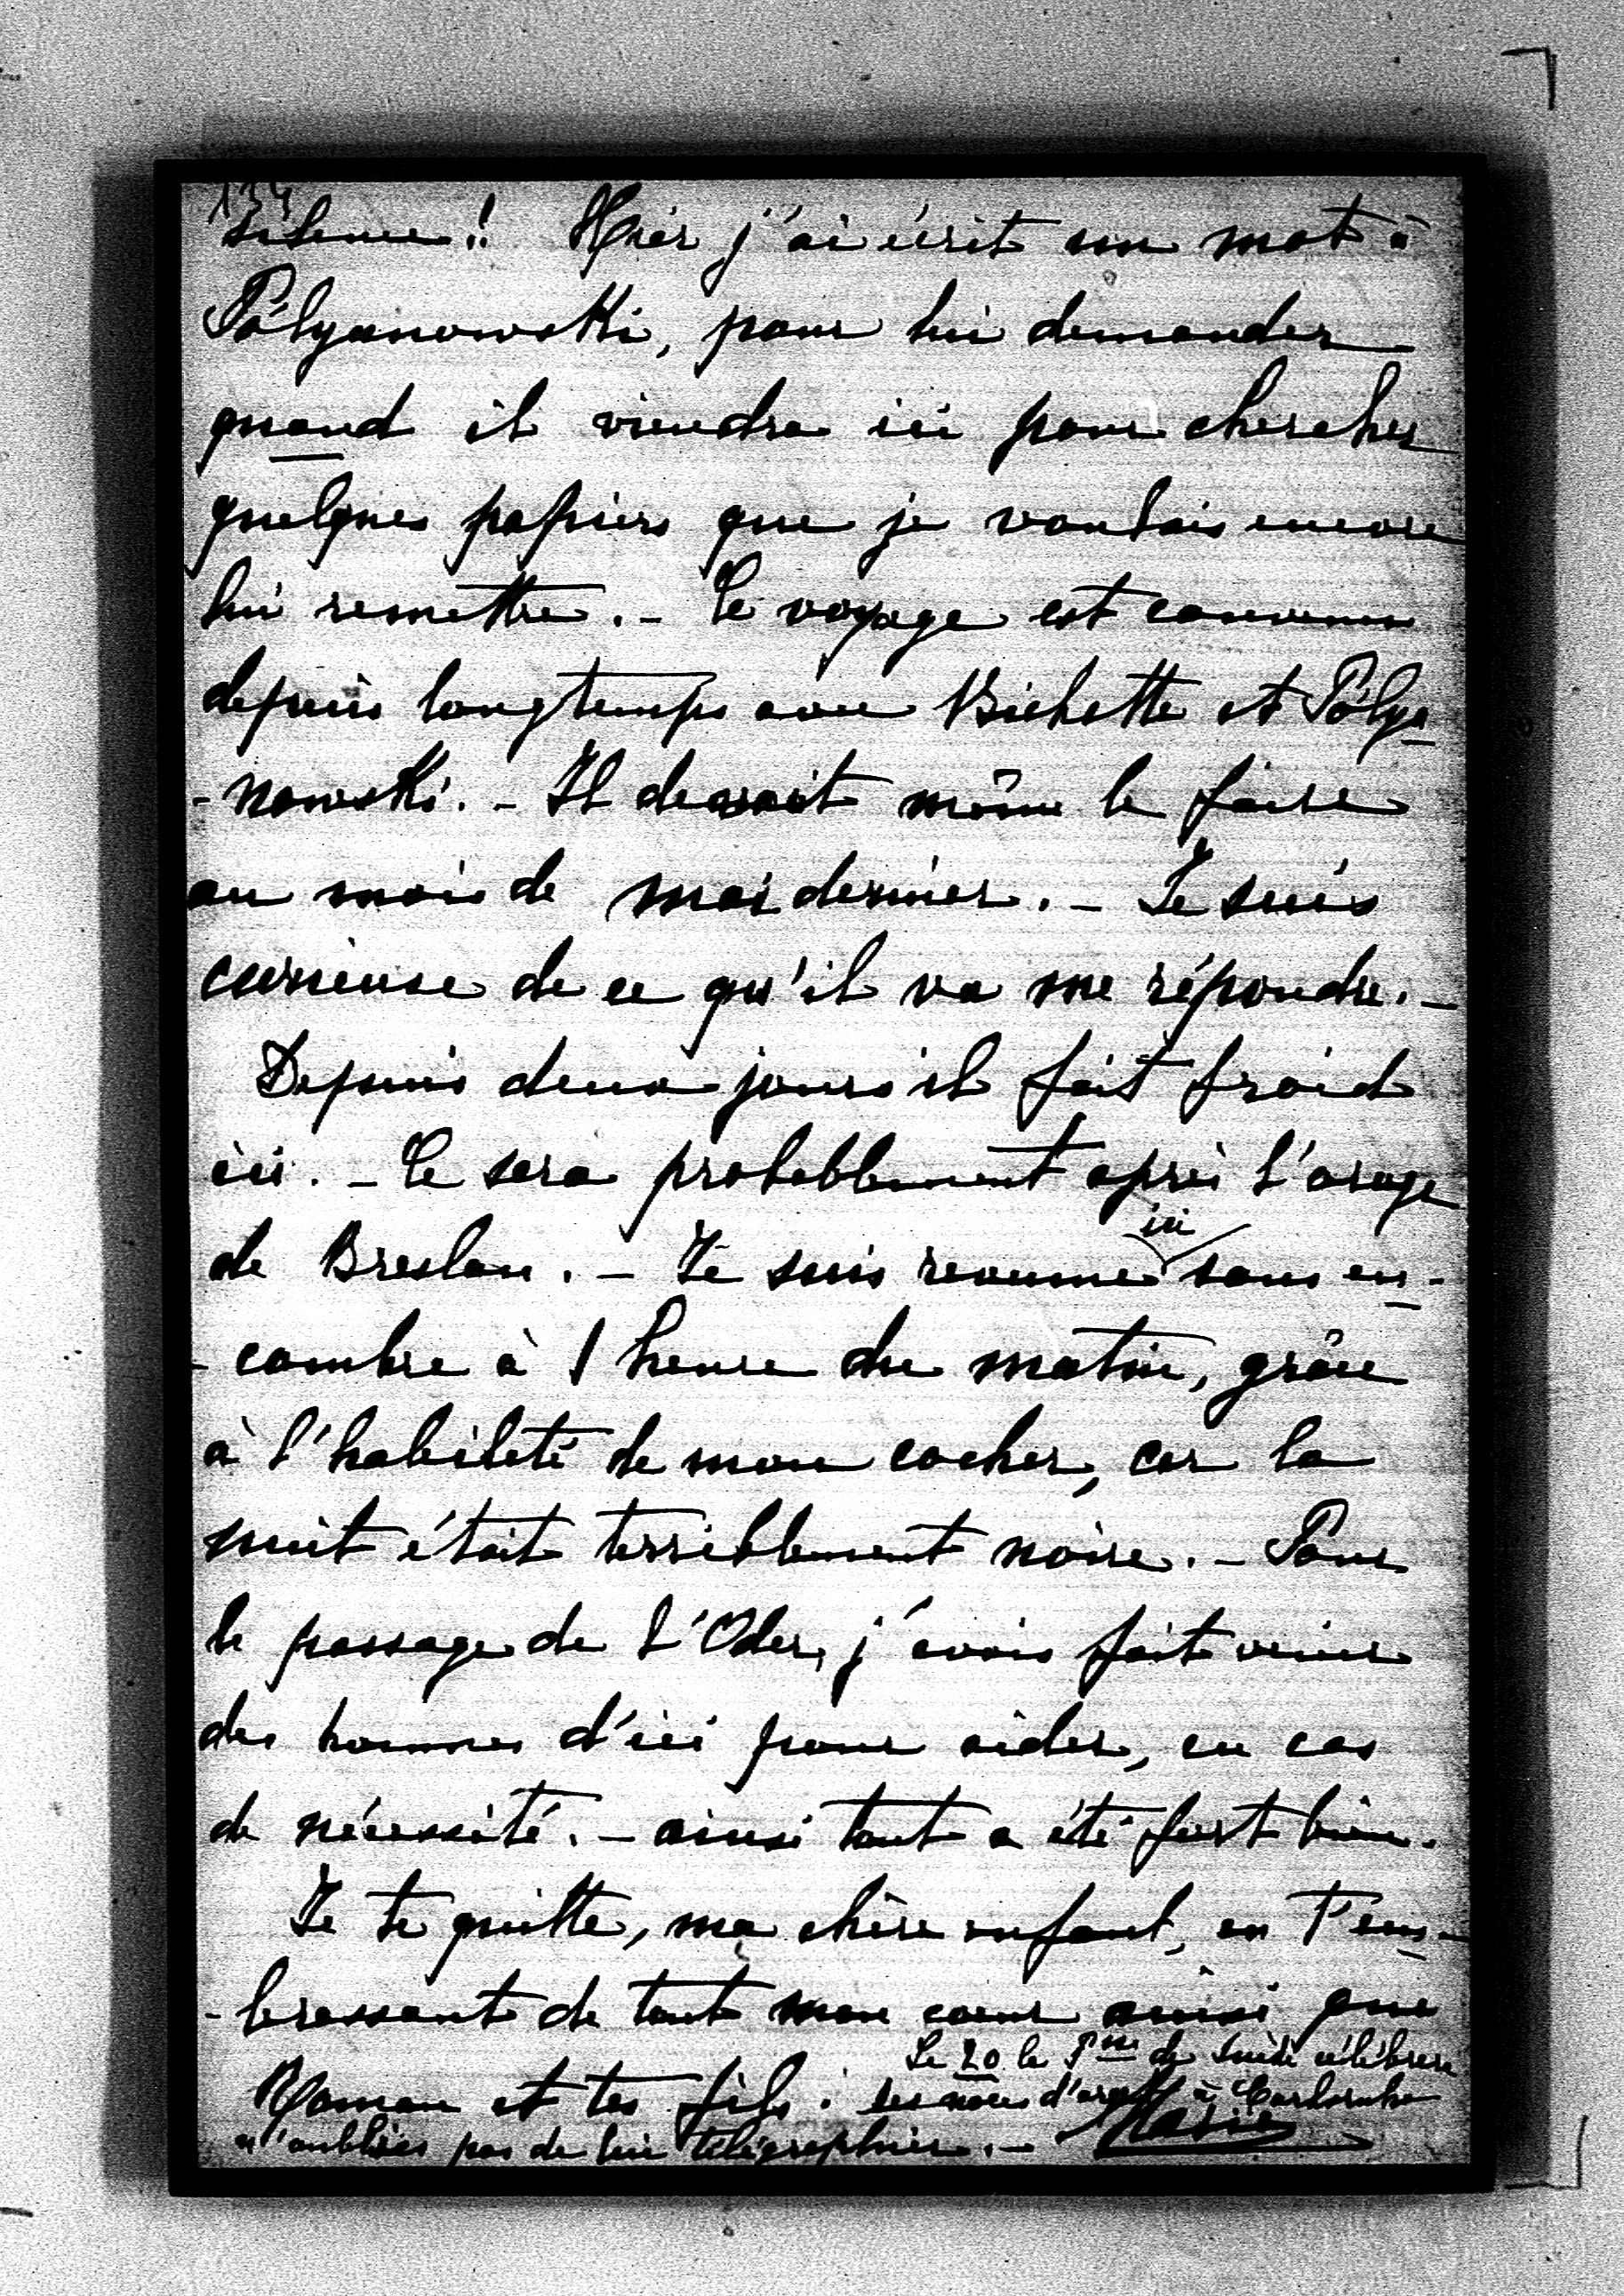 134
silence!! Hier j'ai écrit un mot à
Pólyanowski, pour lui demander
quand il viendra ici pour chercher
quelques papiers que je voulais encore
lui remettre. - Ce voyage est convenu
depuis longtemps avec Bichette et Pólya
-nowski. - Il devait même le faire
au mois de mai dernier. - Je suis
curieuse de ce qu'il va me répondre. -
Depuis deux jours il fait froid
ici. - Ce sera probablement après l'orage
de Breslau. - Je suis revenue ici sans en-
-combre à 1 heure du matin, grâce
à l'habileté de mon cocher, car la
nuit était terriblement noire. - Pour
le passage de l'Oder, j'avais fait venir
des hommes d'ici pour aider, en cas
de nécessité. - ainsi tout a été fort bien.
Je te quitte, ma chère enfant, en t'em-
-brassant de tout mon cœur ainsi que
Roman et tes fils.
Le 20 le Pce de Suède célébrera
ses noces d'argent à Carlsruhe
n'oublies pas de lui télégraphier. -
Marie